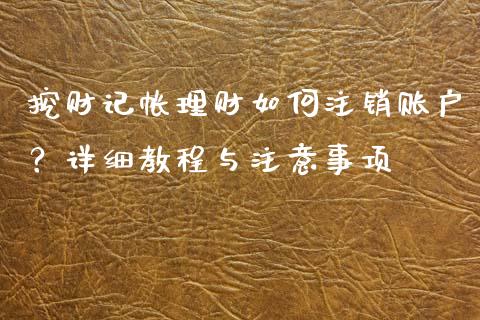 挖财记帐理财如何注销账户
？详细教程与注意事项